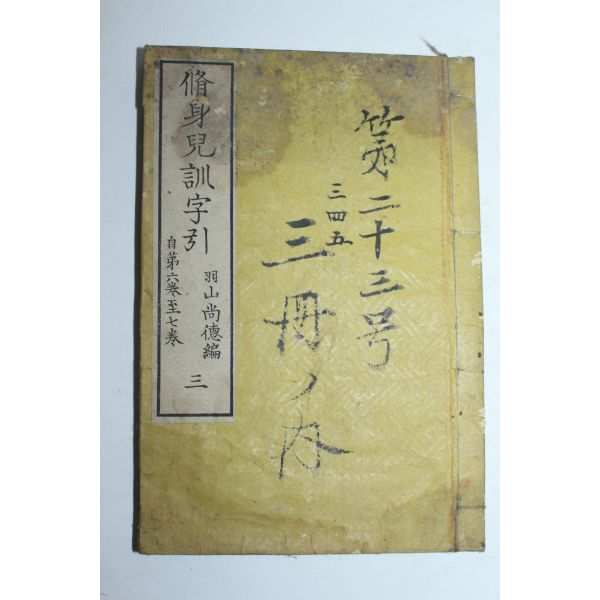 第二十三号
三四五
三冊ノ内
脩身兒訓字引
自第六卷至七卷
羽山尚德編
三